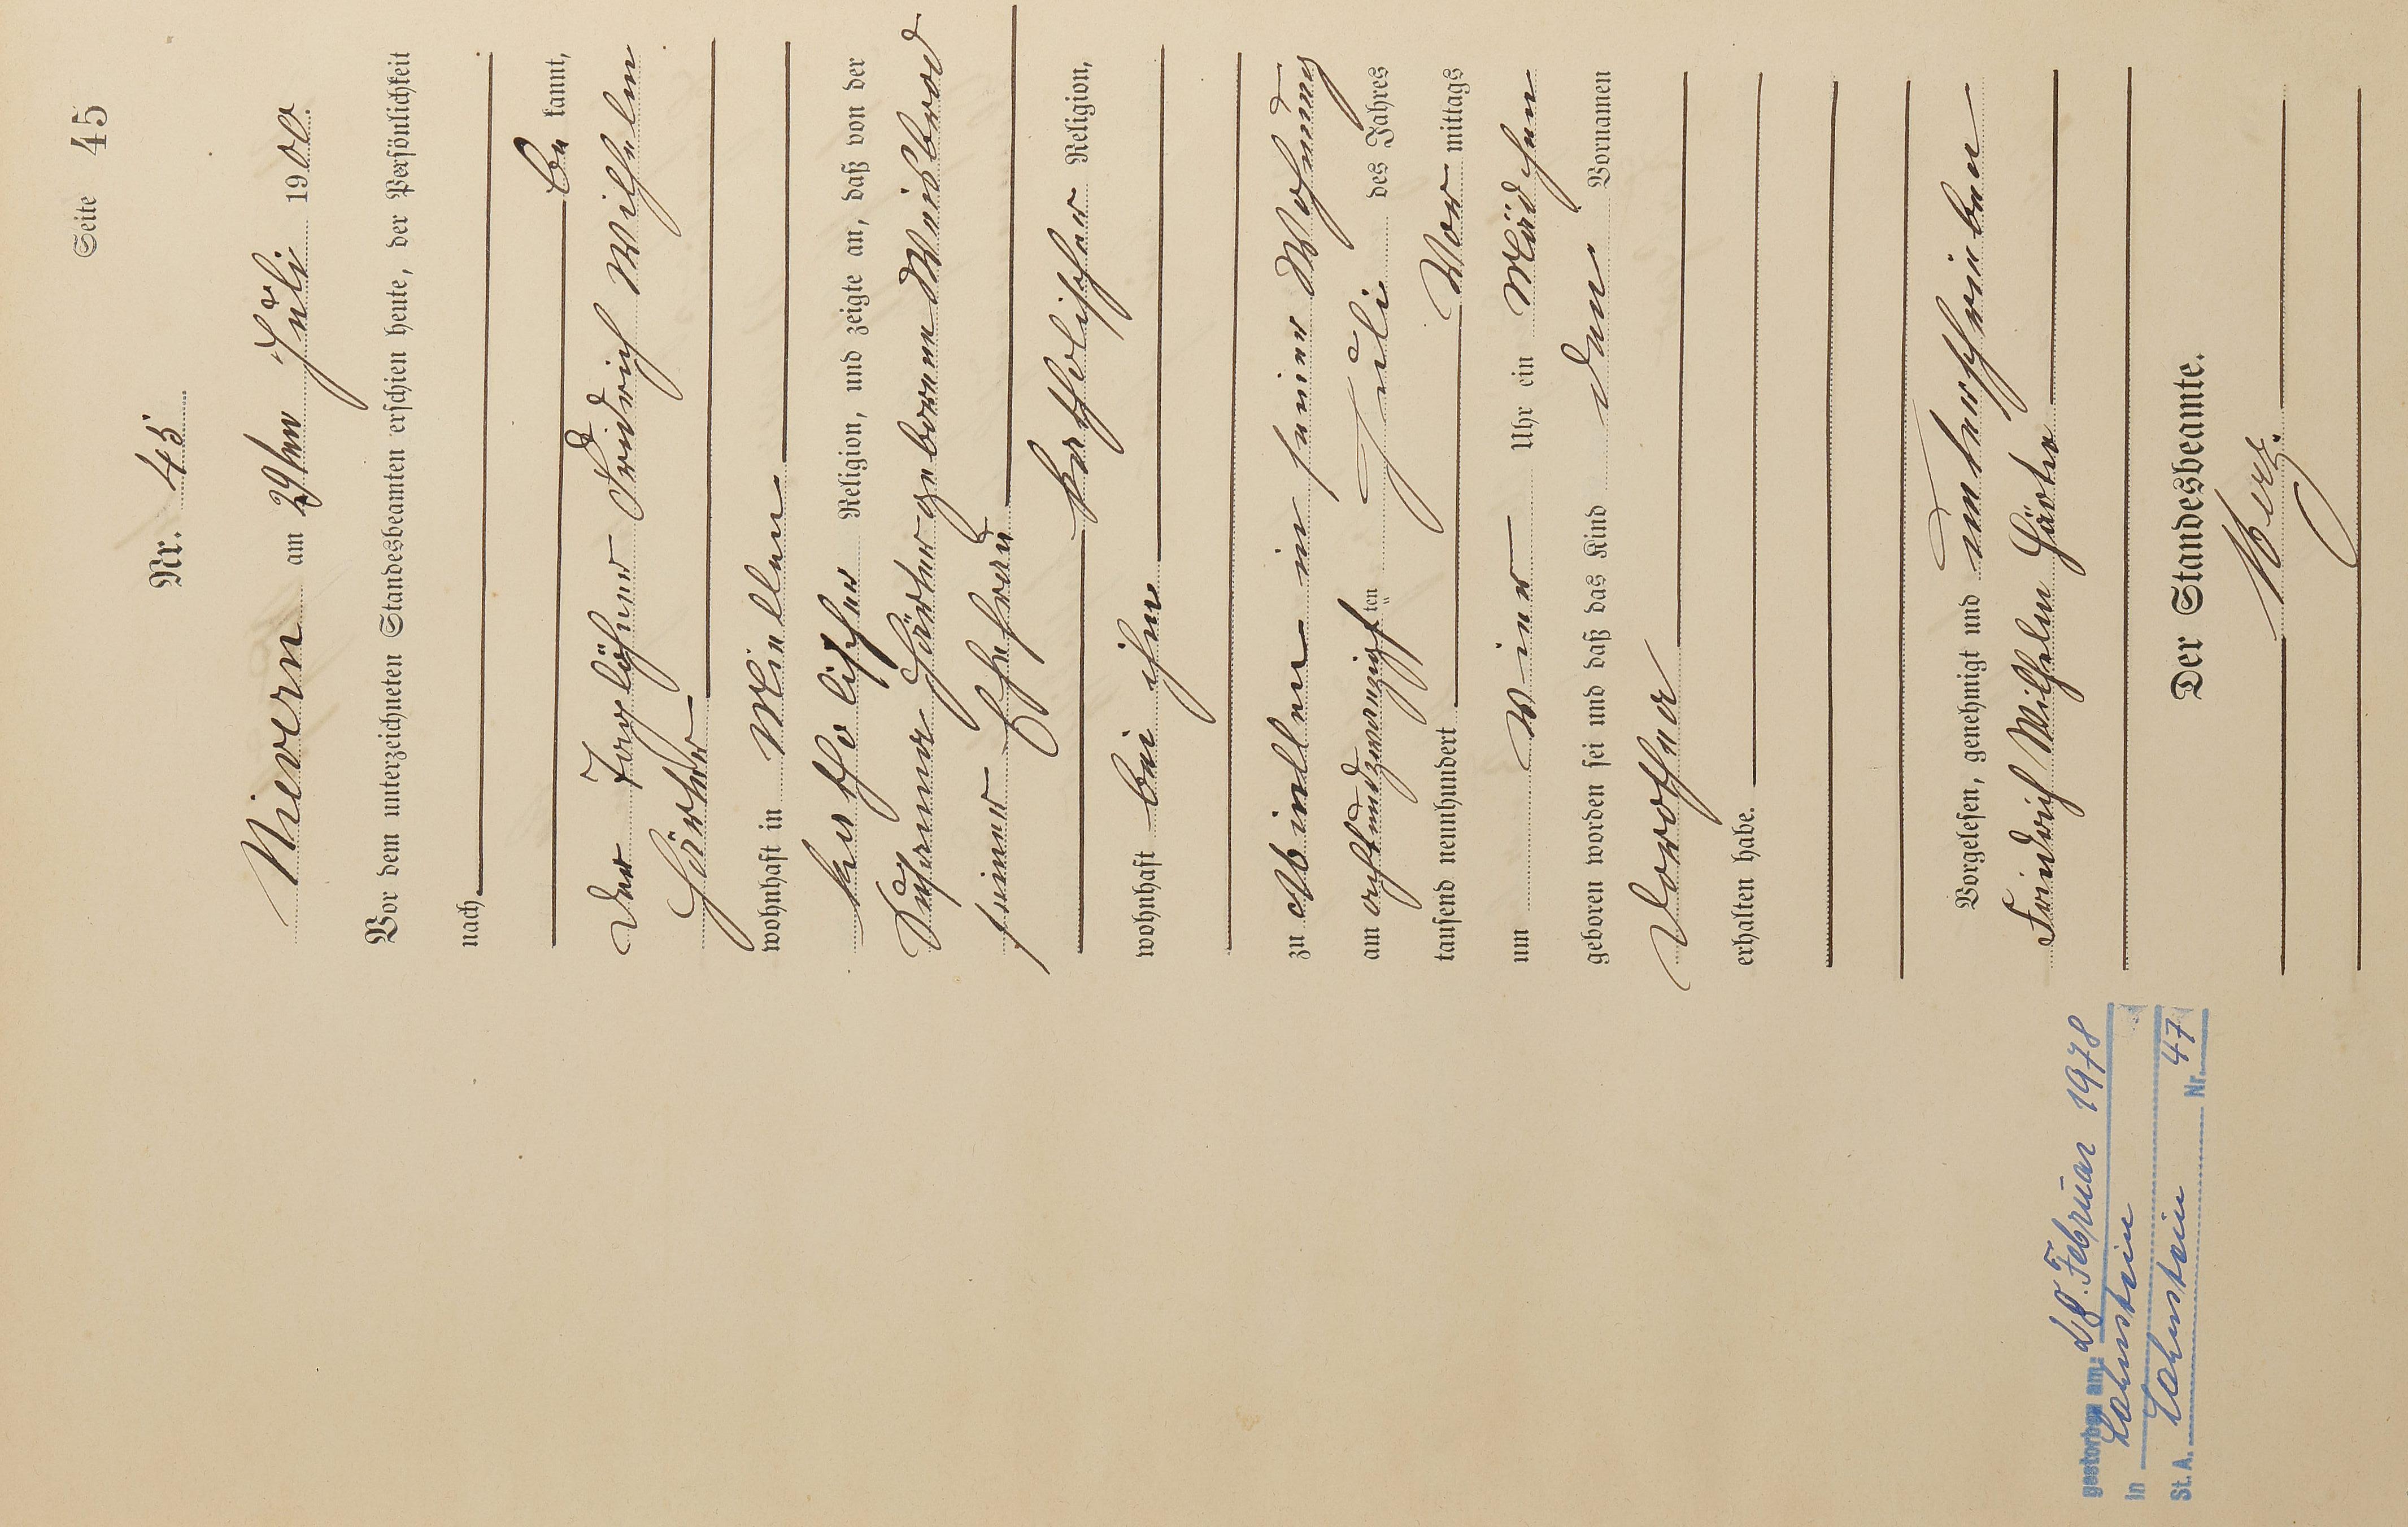 Seite 45
Nr. 45
Nievern am 29ten Juli 1900.
Vor dem unterzeichneten Standesbeamten erschien heute, der Persönlichkeit
nach
be kannt,
der Taglöhner Fridrich Wilhelm
Härter
wohnhaft in Miellen
katholischer Religion, und zeigte an, daß von der
Härter geborene Weisbrod
seiner Ehefrau
katholischer Religion,
wohnhaft bei ihm
zu Miellen in seiner Wohnung
am achtundzwanzigsten Juli des Jahres
tausend neunhundert Vor mittags
um vier Uhr ein Mädchen
geboren worden sei und daß das Kind den Vornamen
Dorothea
erhalten habe.
Vorgelesen, genehmigt und unterschrieben
Friedrich Wilhelm Härter
Der Standesbeamte.
gestorben am: Februar 1978
in Lahnstein
St. A. Lahnstein Nr. 47